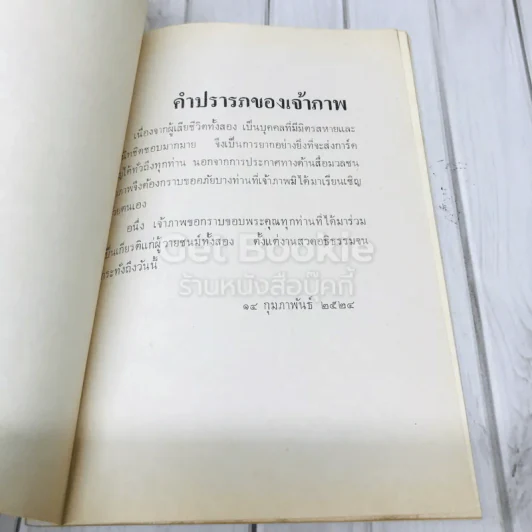 คำปรารภของเจ้าภาพ
เนื่องจากผู้เสียชีวิตทั้งสอง เป็นบุคคลที่มีมิตรสหายและ
ชอบมากมาย จึงเป็นการยากอย่างยิ่งที่จะส่งการ์ด
ได้ทั่วถึงทุกท่าน นอกจากการประกาศทางด้านสื่อมวลชน
ภาพจึงต้องกราบขออภัยบางท่านที่เจ้าภาพมิได้มาเรียนเชิญ
ตนเอง
อนึ่ง เจ้าภาพขอกราบขอบพระคุณทุกท่านที่ได้มาร่วม
เป็นเกียรติแก่ผู้วายชนม์ทั้งสอง ตั้งแต่งานสวดอภิธรรมจน
กระทั่งถึงวันนี้
Get Bookie
ร้านหนังสือบุ๊คกี้
๑๔ กุมภาพันธ์ ๒๕๒๔